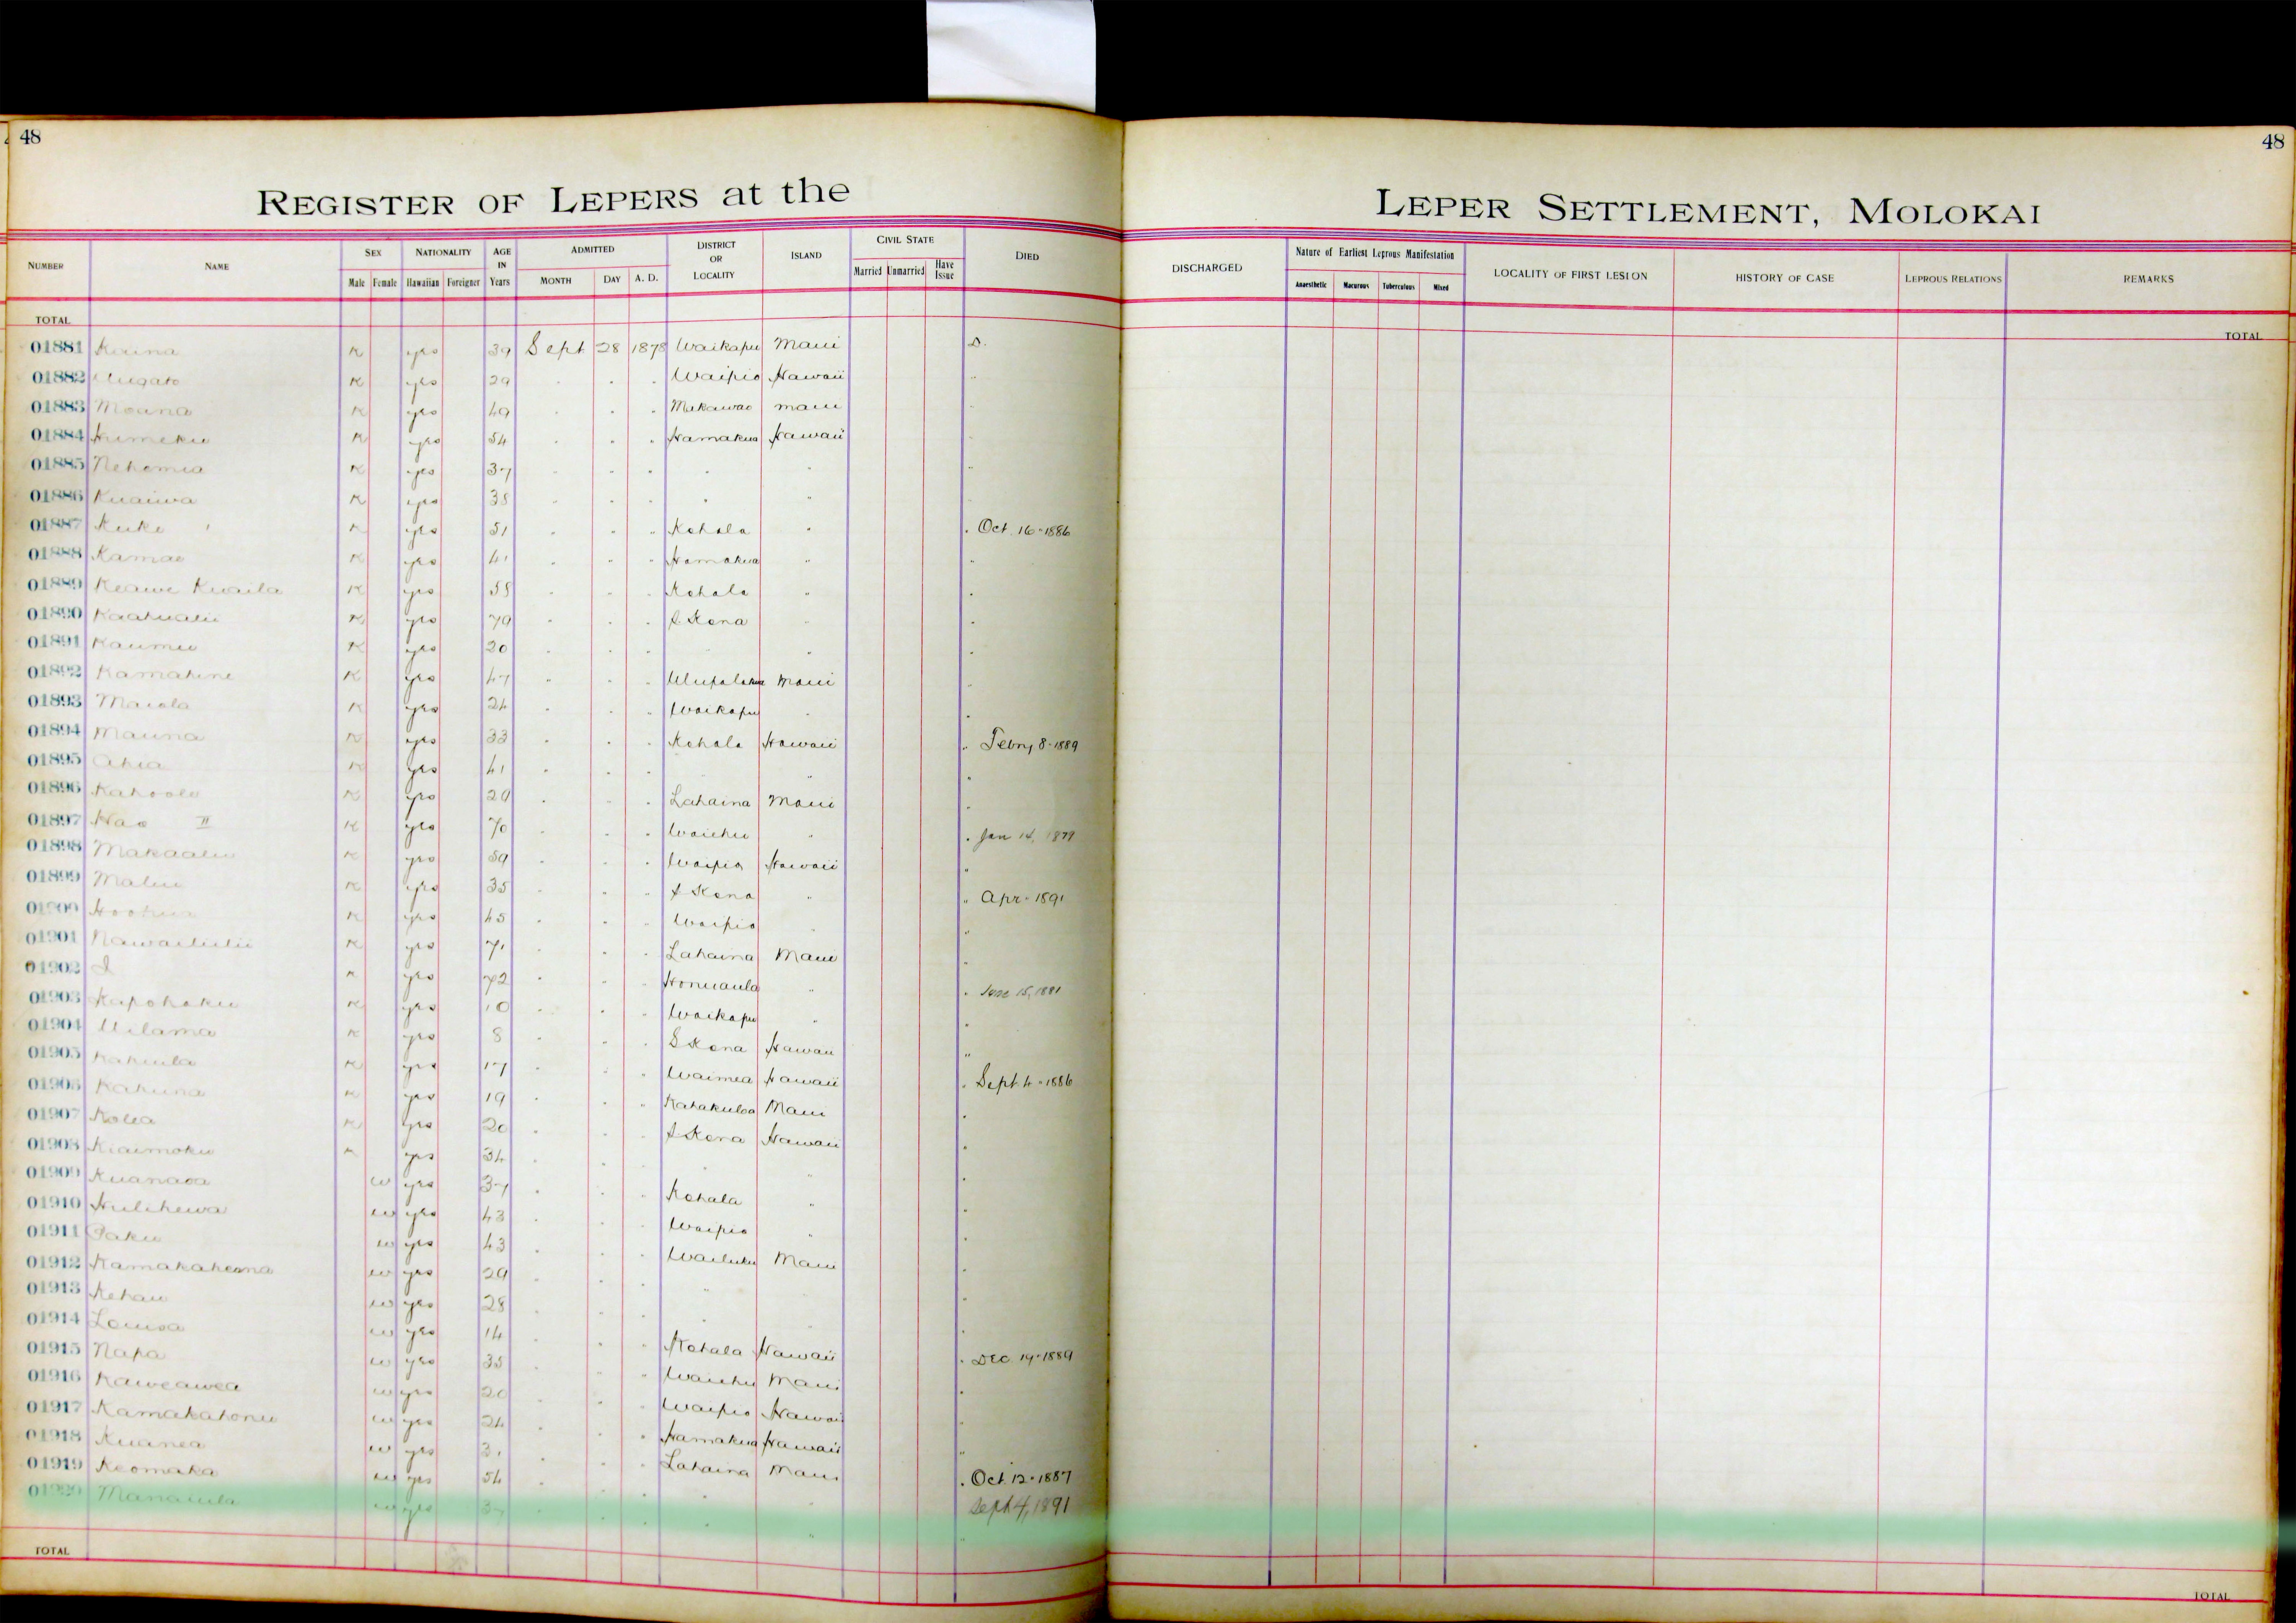 48
48
REGISTER OF LEPERS at the LEPER SETTLEMENT, MOLOKAI
NUMBER NAME SEX NATIONALITY AGE IN Years ADMITTED DISTRICT OR LOCALITY ISLAND CIVIL STATE DIED
Male Female Hawaiian Foreigner MONTH DAY A. D. Married Unmarried Have Issue
DISCHARGED Nature of Earliest Leprous Manifestation LOCALITY OF FIRST LESION HISTORY OF CASE LEPROUS RELATIONS REMARKS
Anaesthetic Macurous Tuberculous Mixed
TOTAL TOTAL
01881 K yes 39 Sept 28 1878 Waikapu Maui D.
01882 K yes 29 " " " Waipio Hawaii "
01883 Moana K yes 49 " " " Makawao Maui "
01884 Humeku K yes 54 " " " Hamakua Hawaii "
01885 Nehemia K yes 37 " " " " " "
01886 Kuaiwa K yes 38 " " " " " "
01887 Kuke K yes 51 " " " Kohala " " Oct. 16 - 1886
01888 Kamae K yes 41 " " " Hamakua " "
01889 Keawe Kuaila K yes 58 " " " Kohala " "
01890 Kaahualii K yes 79 " " " S Kona " "
01891 Kaumu K yes 20 " " " " " "
01892 Kamahine K yes 47 " " " Ulupalakua Maui "
01893 Maiola K yes 24 " " " Waikapu " "
01894 Mauna K yes 33 " " " Kohala Hawaii " Febry 8 - 1889
01895 Ahia K yes 41 " " " " "
01896 Kahoole K yes 29 " " " Lahaina Maui "
01897 Hao II K yes 70 " " " Waiehu " " Jan 14, 1879
01898 Makaalu K yes 59 " " " Waipio Hawaii "
01899 Malu K yes 35 " " " S Kona " " Apr - 1891
01900 Hoohua K yes 45 " " " Waipio " "
01901 Nawailiilii K yes 71 " " " Lahaina Maui "
01902 I K yes 72 " " " Honuaula " " June 15, 1881
01903 Kapohaku K yes 10 " " " Waikapu " "
01904 Uilama K yes 8 " " " S Kona Hawaii "
01905 Kahiula K yes 17 " " " Waimea Hawaii " Sept. 4 - 1886
01906 Kahuna K yes 19 " " " Kahakuloa Maui "
01907 Kolea K yes 20 " " " S Kona Hawaii "
01908 Kiaimoku K yes 34 " " " " "
01909 Kuanaoa w yes 37 " " " Kohala " "
01910 Hulihewa w yes 43 " " " Waipio " "
01911 Paku w yes 43 " " " Wailuku Maui "
01912 w yes 29 " " " " "
01913 Kehau w yes 28 " " " " "
01914 Louisa w yes 14 " " " Kohala Hawaii " Dec. 19 - 1889
01915 Napa w yes 35 " " " Waiehu Maui "
01916 Kaweawea w yes 20 " " " Waipio Hawaii "
01917 Kamakahonu w yes 24 " " " Hamakua Hawaii "
01918 Kuanea w yes 31 " " " Lahaina Maui " Oct 12 - 1887
01919 Keomaka w yes 54 " " " " " Sept 4, 1891
01920 Manaiula w yes 37 " " " " "
TOTAL TOTAL